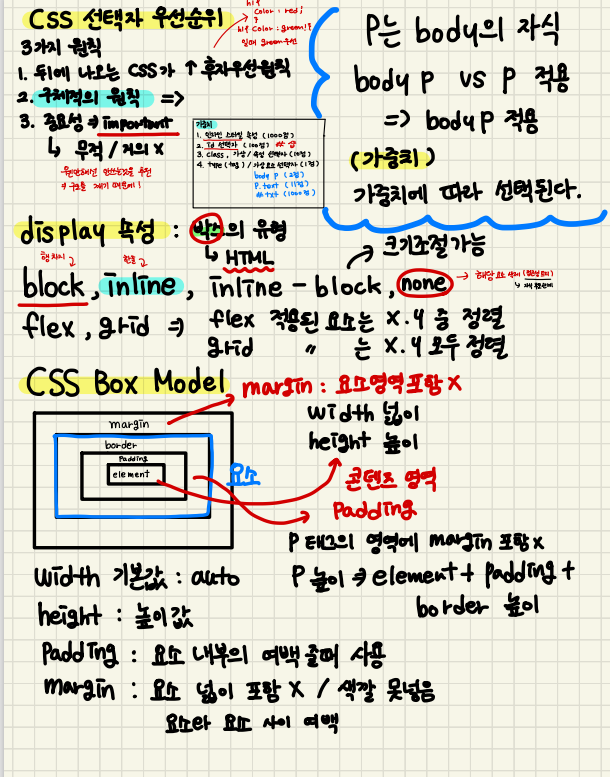 CSS 선택자 우선순위
h1{
color : red;
}
h1{ color : green; }
일때 green 우선
3가지 원칙
1. 뒤에 나오는 CSS가 ↑ 후자우선원칙
2. 구체적의 원칙 =>
3. 중요성 => important
↳ 무적 / 거의 X
가중치
1. 인라인 스타일 속성 (1000점)
2. id 선택자 (100점)
3. class, 가상 / 속성 선택자 (10점)
4. type (태그) / 가상요소 선택자 (1점)
body p (2점)
P.text (11점)
P는 body의 자식
body P vs P 적용
=> body P 적용
(가중치)
가중치에 따라 선택된다.
display 속성 : 박스의 유형
↳ HTML
크기조절 가능
block, inline, inline-block, none
flex, grid => flex 적용된 요소는 X.Y 중 정렬
grid 〃 는 X.Y 모두 정렬
CSS Box Model
margin : 요소영역 포함 X
width 넓이
height 높이
margin
border
Padding
element
요소
콘텐츠 영역
Padding
P 태그의 영역에 margin 포함 X
P 높이 => element + padding +
border 높이
width 기본값 : auto
height : 높이 값
Padding : 요소 내부의 여백 줄때 사용
margin : 요소 넓이 포함 X / 색깔 못넣음
요소와 요소 사이 여백